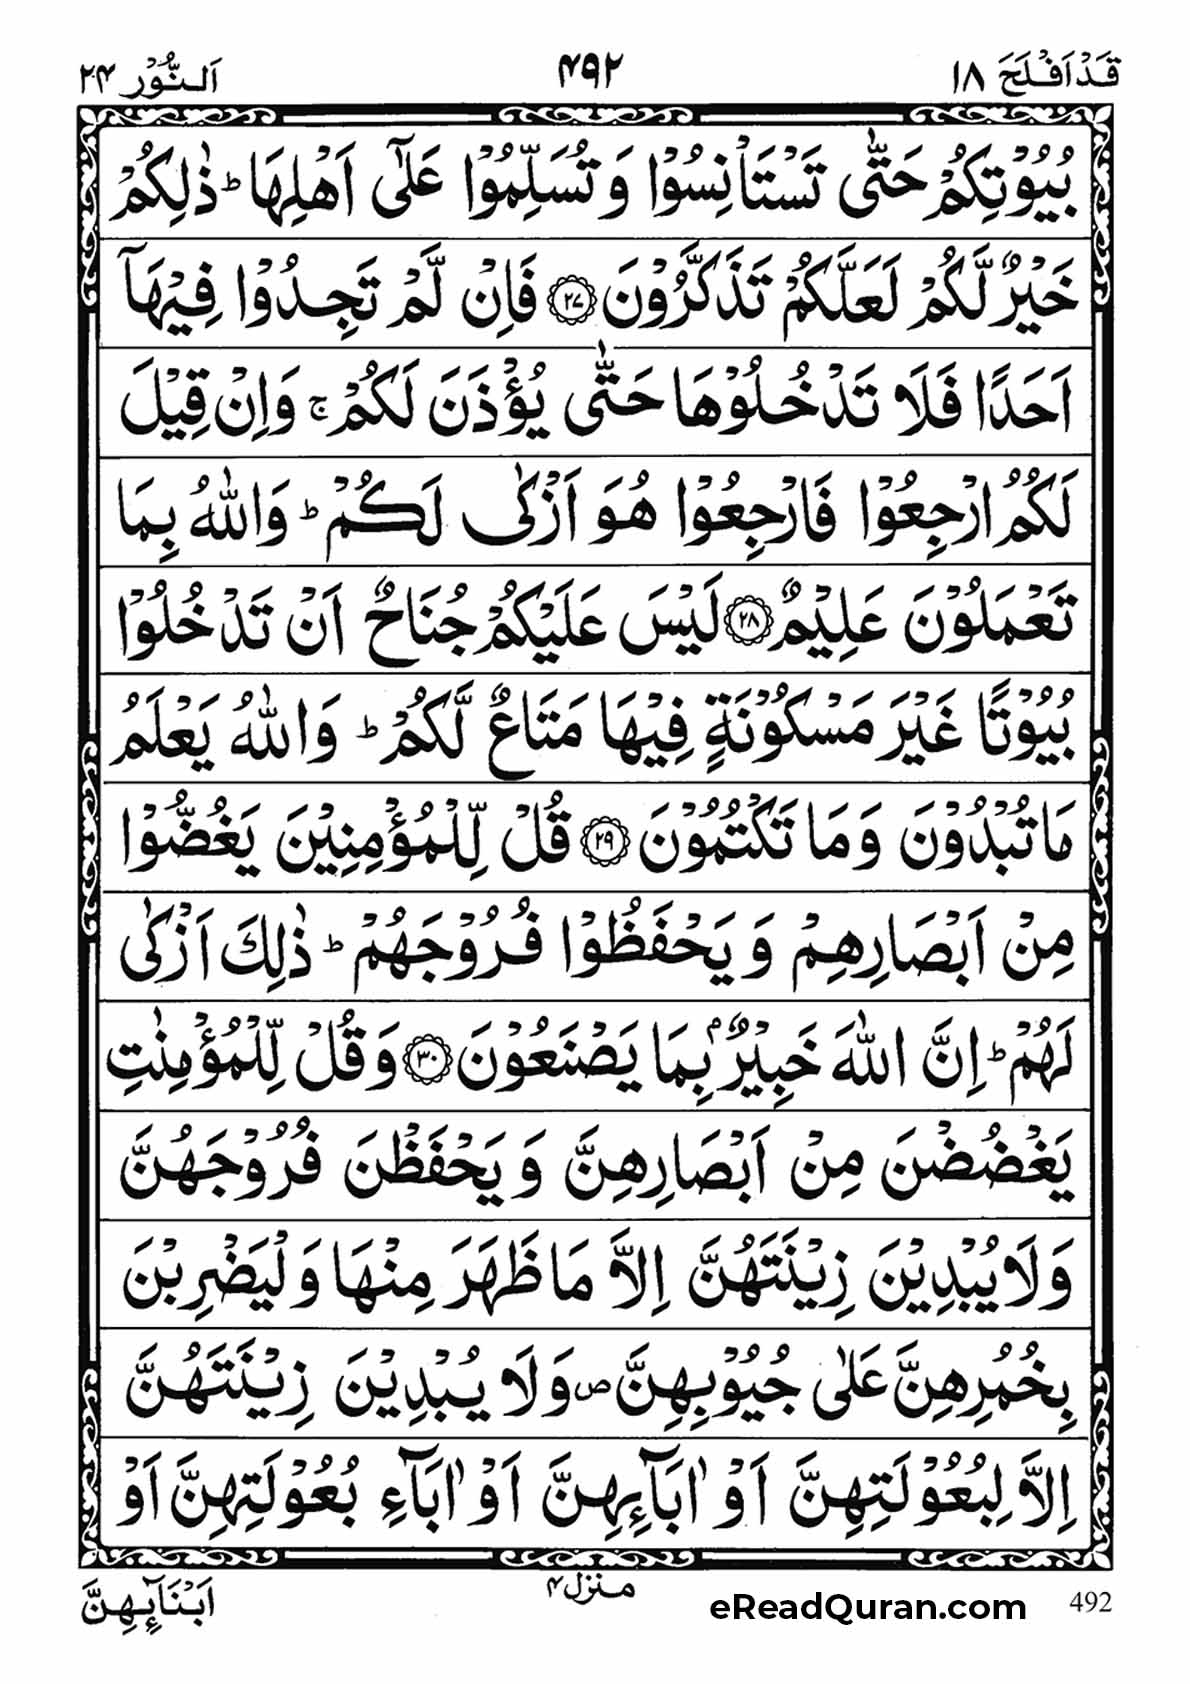 قَدْ اَفْلَحَ ١٨ ۴۹۲ اَلنُّوْر ۲۴
بُيُوْتِكُمْ حَتّٰى تَسْتَاْنِسُوْا وَ تُسَلِّمُوْا عَلٰٓى اَهْلِهَا ؕ ذٰلِكُمْ
خَيْرٌ لَّكُمْ لَعَلَّكُمْ تَذَكَّرُوْنَ ۝۲۷ فَاِنْ لَّمْ تَجِدُوْا فِيْهَاۤ
اَحَدًا فَلَا تَدْخُلُوْهَا حَتّٰى يُؤْذَنَ لَكُمْ ۚ وَاِنْ قِيْلَ
لَكُمُ ارْجِعُوْا فَارْجِعُوْا هُوَ اَزْكٰى لَكُمْ ؕ وَاللّٰهُ بِمَا
تَعْمَلُوْنَ عَلِيْمٌ ۝۲۸ لَيْسَ عَلَيْكُمْ جُنَاحٌ اَنْ تَدْخُلُوْا
بُيُوْتًا غَيْرَ مَسْكُوْنَةٍ فِيْهَا مَتَاعٌ لَّكُمْ ؕ وَاللّٰهُ يَعْلَمُ
مَا تُبْدُوْنَ وَمَا تَكْتُمُوْنَ ۝۲۹ قُلْ لِّلْمُؤْمِنِيْنَ يَغُضُّوْا
مِنْ اَبْصَارِهِمْ وَ يَحْفَظُوْا فُرُوْجَهُمْ ؕ ذٰلِكَ اَزْكٰى
لَهُمْ ؕ اِنَّ اللّٰهَ خَبِيْرٌۢ بِمَا يَصْنَعُوْنَ ۝۳۰ وَقُلْ لِّلْمُؤْمِنٰتِ
يَغْضُضْنَ مِنْ اَبْصَارِهِنَّ وَ يَحْفَظْنَ فُرُوْجَهُنَّ
وَلَا يُبْدِيْنَ زِيْنَتَهُنَّ اِلَّا مَا ظَهَرَ مِنْهَا وَلْيَضْرِبْنَ
بِخُمُرِهِنَّ عَلٰى جُيُوْبِهِنَّ ۪ وَلَا يُبْدِيْنَ زِيْنَتَهُنَّ
اِلَّا لِبُعُوْلَتِهِنَّ اَوْ اٰبَآئِهِنَّ اَوْ اٰبَآءِ بُعُوْلَتِهِنَّ اَوْ
اَبْنَآئِهِنَّ منزل ۴ eReadQuran.com 492